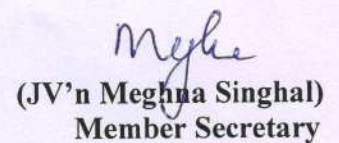 (JV'n Meghna Singhal)
Member Secretary